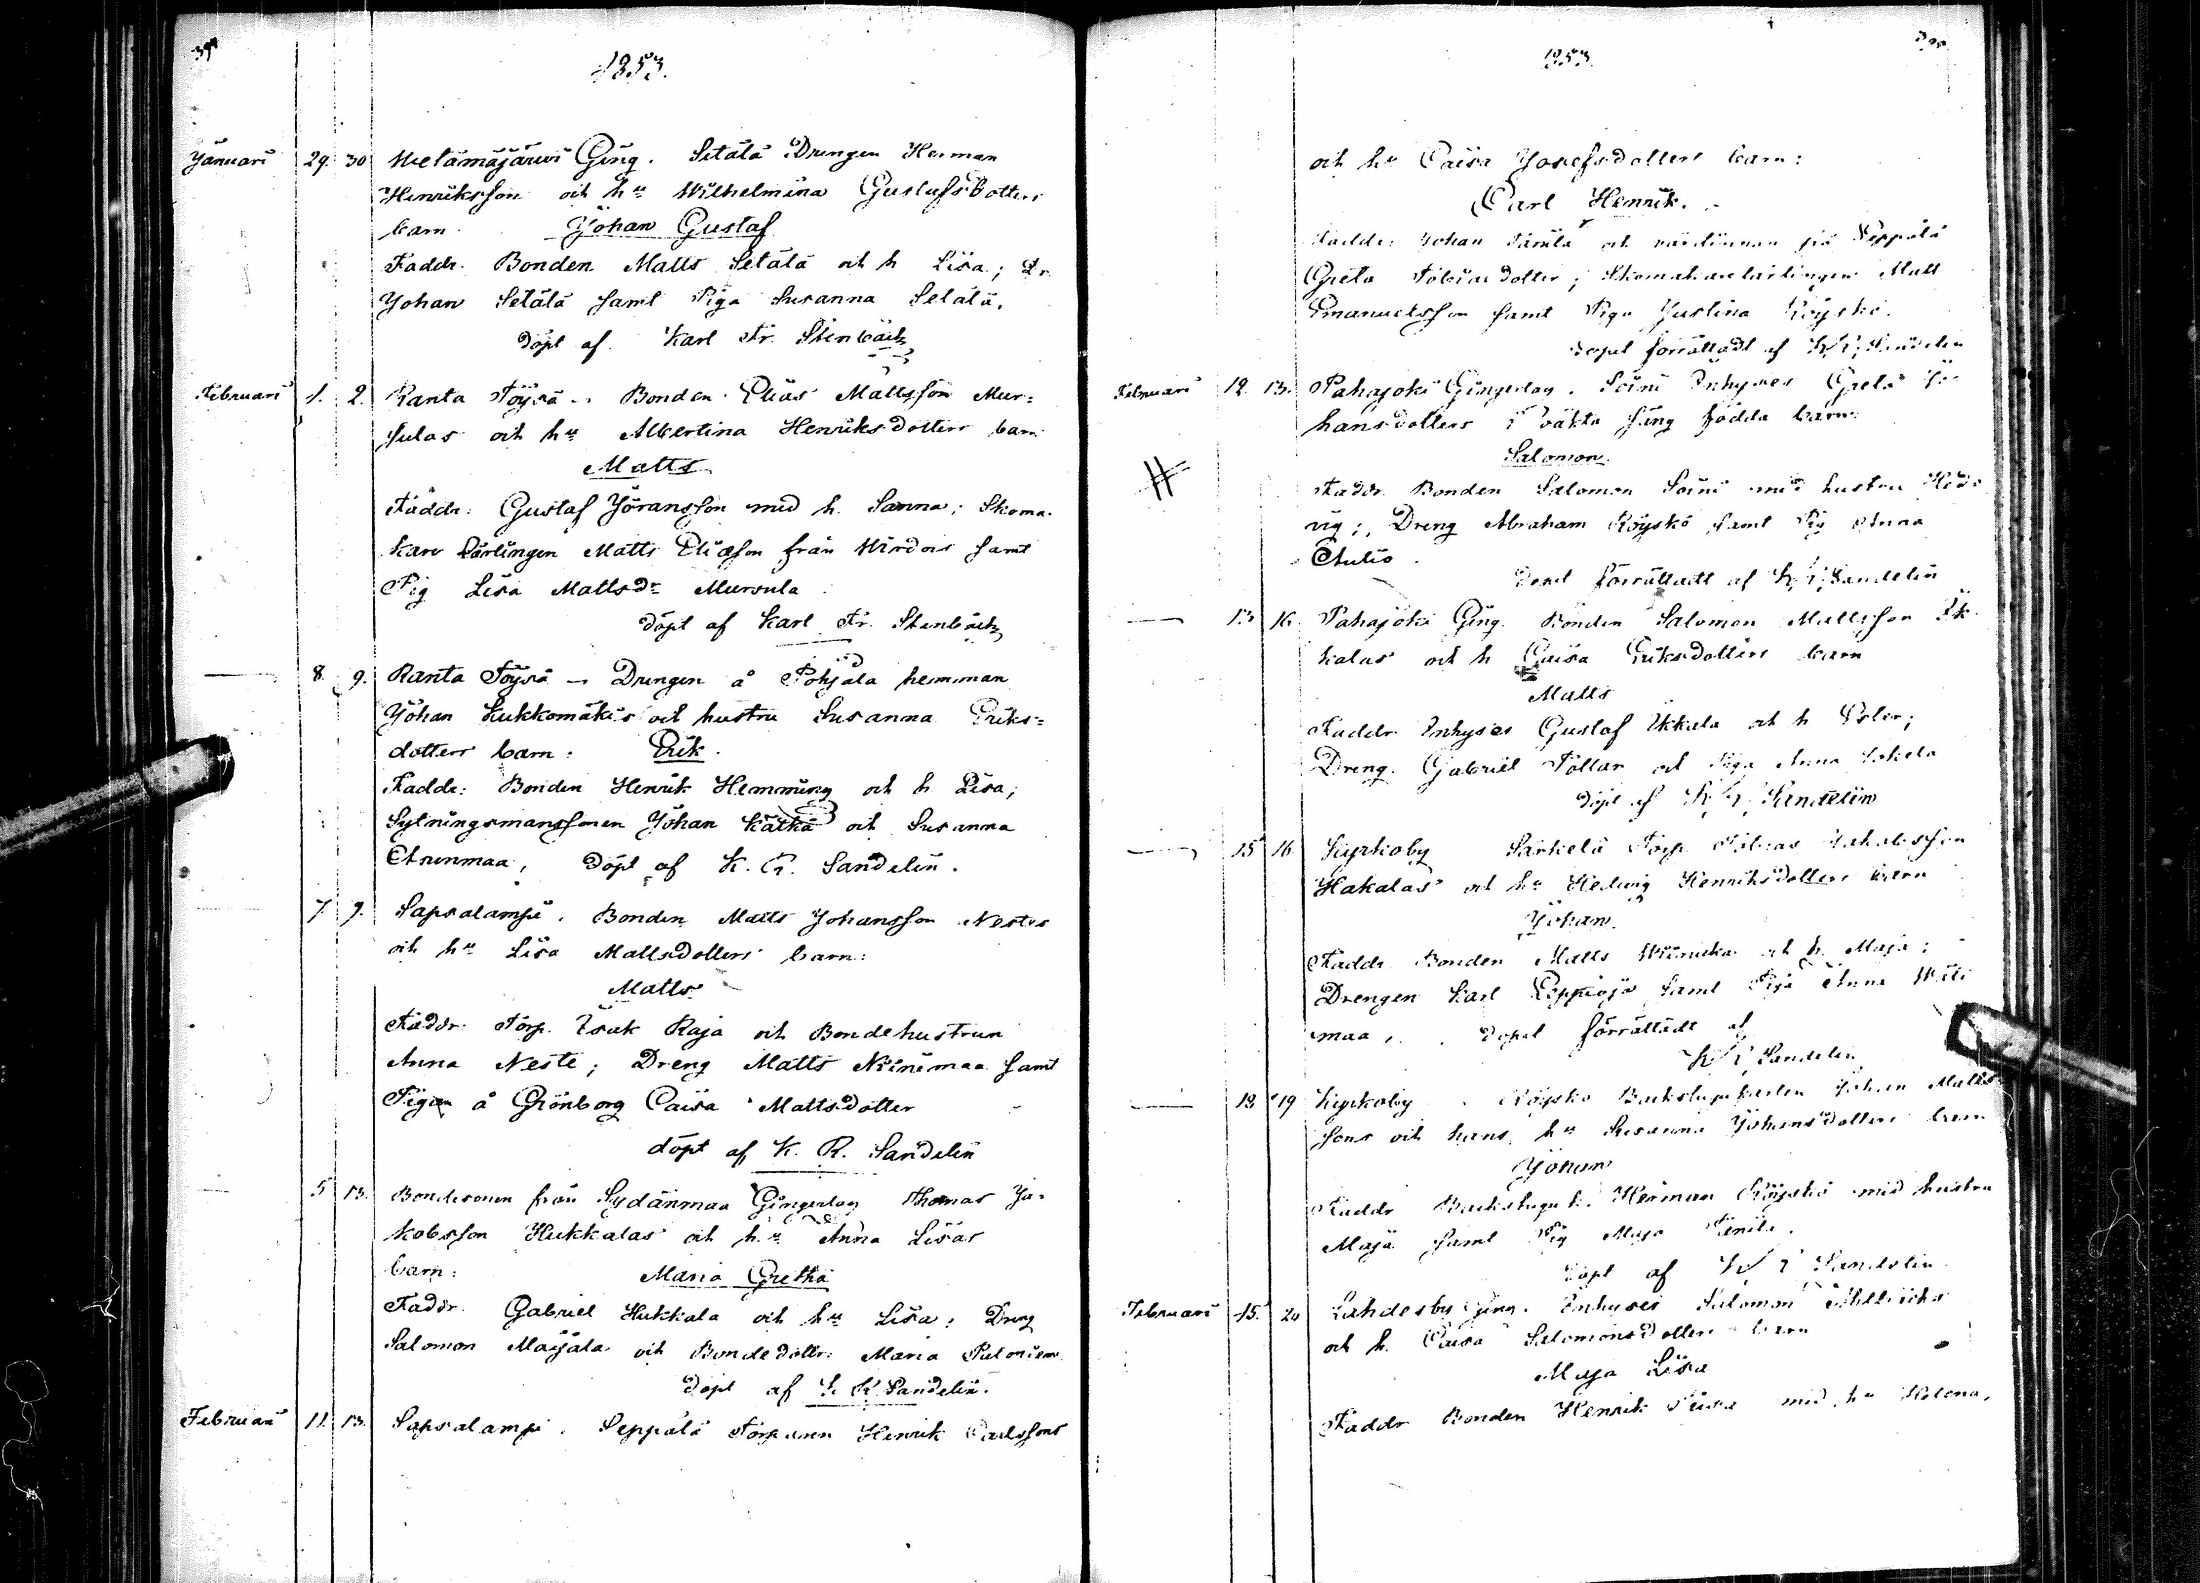 1853.
Januari 29. 30 Metämäjärwi Ging. Setälä Drengen Herman
Henriksson och hu Wilhelmina Gustafsdotters
barn Johan Gustaf
Faddr. Bonden Matts Setälä och h Lisa; Dr.
Johan Setälä samt Piga Susanna Setälä.
döpt af Karl Fr. Stenbäck
Februari 1. 2. Ranta Töysä - Bonden Elias Mattsson Mur=
sulas och hu Albertina Henriksdotters barn
Matts
Faddr: Gustaf Jöransson med h. Sanna; Skoma-
kare Lärlingen Matts Eliasson från Wirdois samt
Pig Lisa Mattsdr Mursula
döpt af Karl Fr. Stenbäck
8. 9. Ranta Töysä - Drengen å Pohjala hemman
Johan Kukkomäkis och hustru Susanna Eriks=
dotters barn: Erik.
Faddr: Bonden Henrik Hemming och h Lisa;
Sytningsmanssonen Johan Kätkä och Susanna
Asunmaa, döpt af K. R. Sandelin.
7. 9. Sapsalampi. Bonden Matts Johansson Nestes
och hu Lisa Mattsdotters barn:
Matts
Faddr. Torp. Isak Raja och Bondehustrun
Anna Neste; Dreng Matts Niinimaa samt
Pigan å Grönborg Caisa Mattsdotter
döpt af K. R. Sandelin
5 13. Bondesonen från Sydänmaa Gingerlag Thomas Ja-
kobsson Hukkalas och hu Anna Lisas
barn: Maria Gretha
Faddr. Gabriel Hukkala och hu Lisa; Dreng
Salomon Majala och Bondedottr: Maria
döpt af K R Sandelin.
Februari 11. 13. Sapsalampi. Seppälä Torparen Henrik Carlssons
1853.
och hu Caisa Josefsdotters barn:
Carl Henrik.
Faddr: Johan och värdinnan på Seppälä
Greta Tobiasdotter; Skomakarelärlingen Matt
Emanuelsson samt Piga Justina Röyskö.
Dopet förrättadt af K R Sandelin
Februari 12. 13. Pahajoki Gingerlag. Soini Inhyses Greta Jo-
hansdotters i oäkta säng födda barn:
Salomon.
Faddr. Bonden Salomon Soini med hustru Hed-
vig; Dreng Abraham Röyskö samt Pig Anna
Autio.
Dopet förrättadt af K R Sandelin
13 16 Pahajoki Ging. Bonden Salomon Mattsson Ik-
kalas och h Caisa Eriksdotters barn
Matts
Faddr. Inhyses Gustaf Ikkala och h Ester;
Dreng. Gabriel Pollari och Piga Anna
Döpt af K R Sandelin
15 16 Kyrkoby Särkelä Torp. Tobias Jakobsson
Hakalas och hu Hedwig Henriksdotters barn
Johan.
Faddr. Bonden Matts och h. Maja;
Drengen Karl Leppioja samt Piga Anna
maa, Dopet förrättadt af
K R Sandelin
18 19 Kyrkoby. Röyskö Backstugukarlen Johan Matts-
sons och hans hu Susanna Johansdotters barn
Johan
Faddr Backstuguk. Herman Röyskö med hustru
Maja samt Pig Maja
Döpt af K R Sandelin
Februari 15. 20 Lahdesby Ging. Inhyses Salomon
och h. Caisa Salomonsdotters barn
Maja Lisa
Faddr Bonden Henrik med hu Helena,